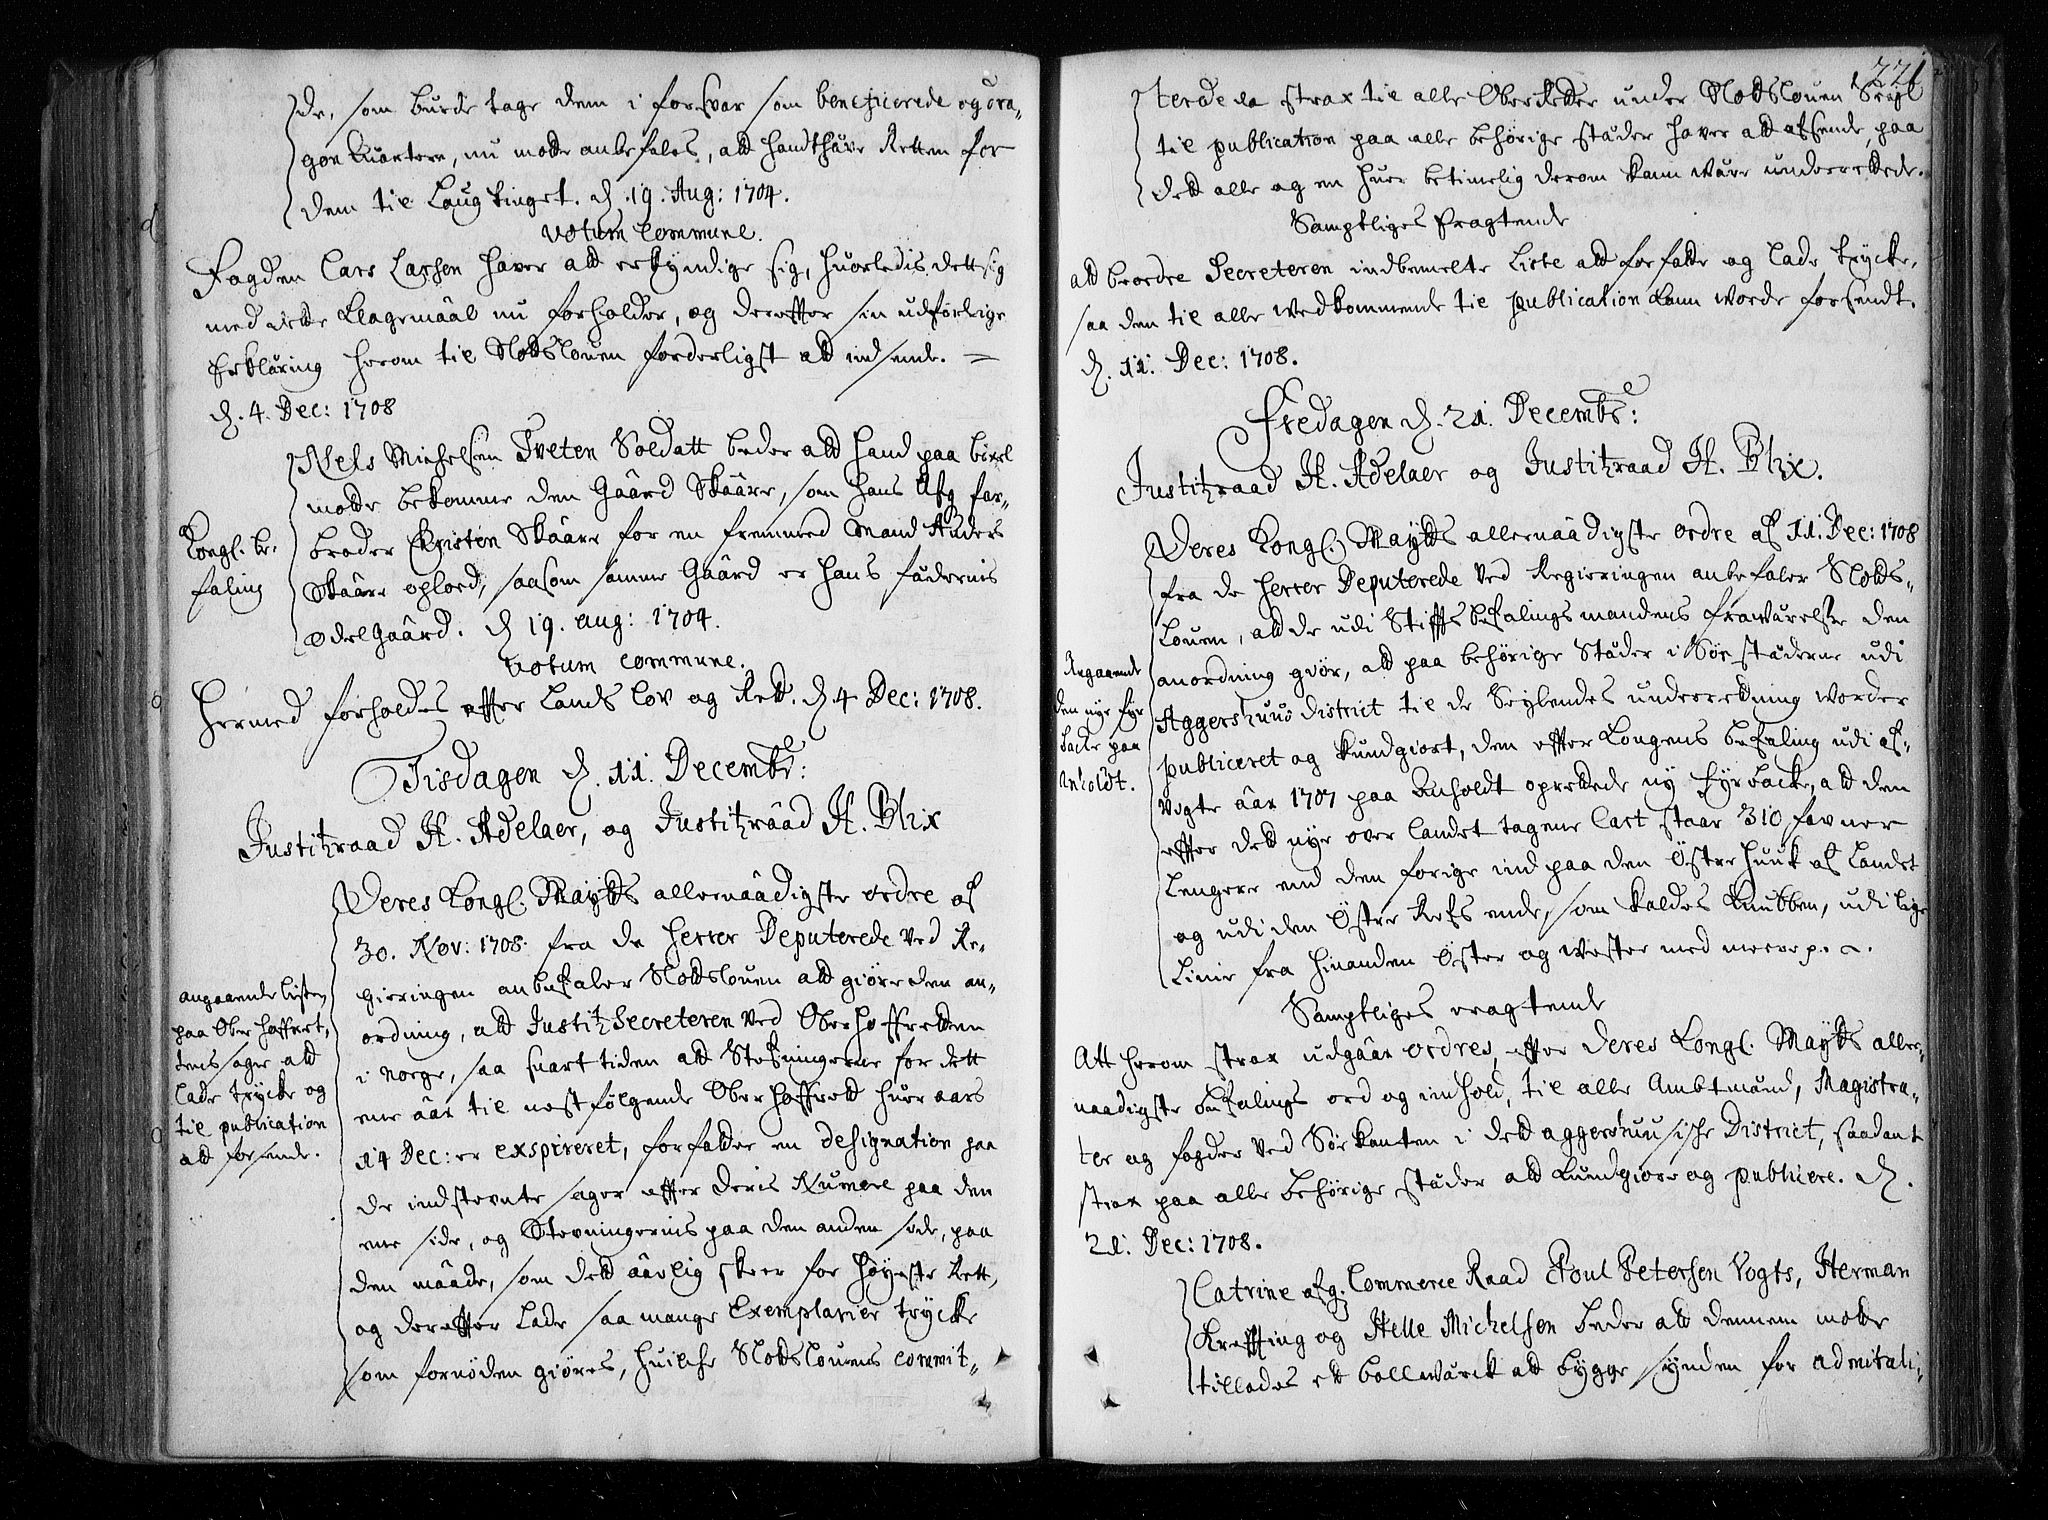 de, som burde tage dem i forsvar som beneficerede og dra-
gon Quarteer, nu motte anbefales, att handthæve Retten for
dem til Laugtinget. d. 19. Aug: 1704.
Votum Commune.
Fogden Lars Larsen haver att erkyndige sig, huorledis dett sig
med dette klagemaal nu forholder, og dereffter sin udførlige
Erklæring herom til Slottsloven forderligst att indsende.
d. 4. Dec: 1708
Niels Michelsen Tveten Soldatt beder att hand paa
motte bekomme den Gaard Skaare, som hans Afg far-
broder Christen Skaare for en fremmed Mand Anders
Skaare oplod, saasom samme Gaard er hans fædernis
Odelgaard. d 19. aug: 1704.
Kongl. be-
faling
Votum commune.
Hermed forholdes effter Lands lov og Rett. d 4 Dec: 1708.
Tisdagen d. 11. Decembr:
Justitzraad H. Adelaer, og Justitzraad H. Blix
Deres Kongl. Maytts allernaadigste ordre af
30. Nov: 1708. fra de Herrer Deputerede ved Re-
gieringen anbefaler Slottsloven att giøre den an-
ordning, att Justitz Secreteren ved Oberhoffretten
i Norge, saa snart tiden att Stefningerne for dett
ene aar til nestfølgende Oberhoffrett huer aars
14 Dec: er exspireret, forfatter en designation paa
de indstevnte sager effter deris Numere paa den
ene side, og Stevningernis paa den anden side, paa
den maade, som dett aarlig skeer for høyeste Rett,
og dereffter lade saa mange Exemplarier trycke
som fornøden giøres, huilche Slottslovens commit-
angaaende listen
paa Ober Hoffrett-
tens sager att
lade trycke og
til publication
att forsende.
221
terede da strax til alle Oberretter under Slottsloven
til publication paa alle behørige stæder haver att afsende, paa
dett alle og en huer betimelig derom kann være underrettede.
Samptliges eragtende
att beordre Secreteren indbemelte Liste att forfatte og lade trycke,
saa den til alle vedkommende til publication kann worde forsendt.
d. 11. Dec: 1708.
Fredagen d. 21. Decembr:
Justitzraad H. Adelaer og Justitzraad H. Blix.
Deres Kongl. Maytts allernaadigste ordre af 11. Dec: 1708
fra de Herrer Deputerede ved Regieringen anbefaler Slotts-
Loven, att de udi Stiffts befalingsmandens frawærelse den
anordning giør, att paa behørige stæder i Søe stæderne udi
Aggershuus District til de Seylendes underretning worder
publiceret og kundgiort, den effter Kongens befaling udi af-
vigte aar 1707 paa Anholdt oprettede ny fyrbacke, att den
effter dett nye over landet tagene Cart staar 310 favner
Lengere end den forige ind paa den Østre Huuk af Landet
og udi den Østre Refs ende, som kaldes Knubben, udi lige
Linie fra hinanden Øster og Wester med meere p. c.
Angaaende
den nye fyr
backe paa
Anholdt.
Samptliges eragtende
Att herom strax udgaar ordres, effter Deres Kongl. Maytts aller-
naadigste befalings ord og indhold, til alle Ambtmænd, Magistra-
ter og fogder ved Søekanten i dett aggershuusische District, saadant
strax paa alle behørige stæder att kundgiøre og publicere. d.
21. Dec: 1708.
Catrine afg. Commerce Raad Poul Petersen Vogts, Herman
Kreffting og Helle Michelsen beder att dennem motte
tillades ett bollwærck att bygge synden for admirali-